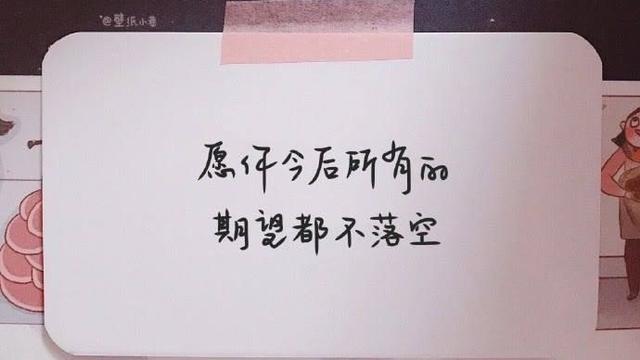 @壁纸小巷
愿你今后所有的
期望都不落空